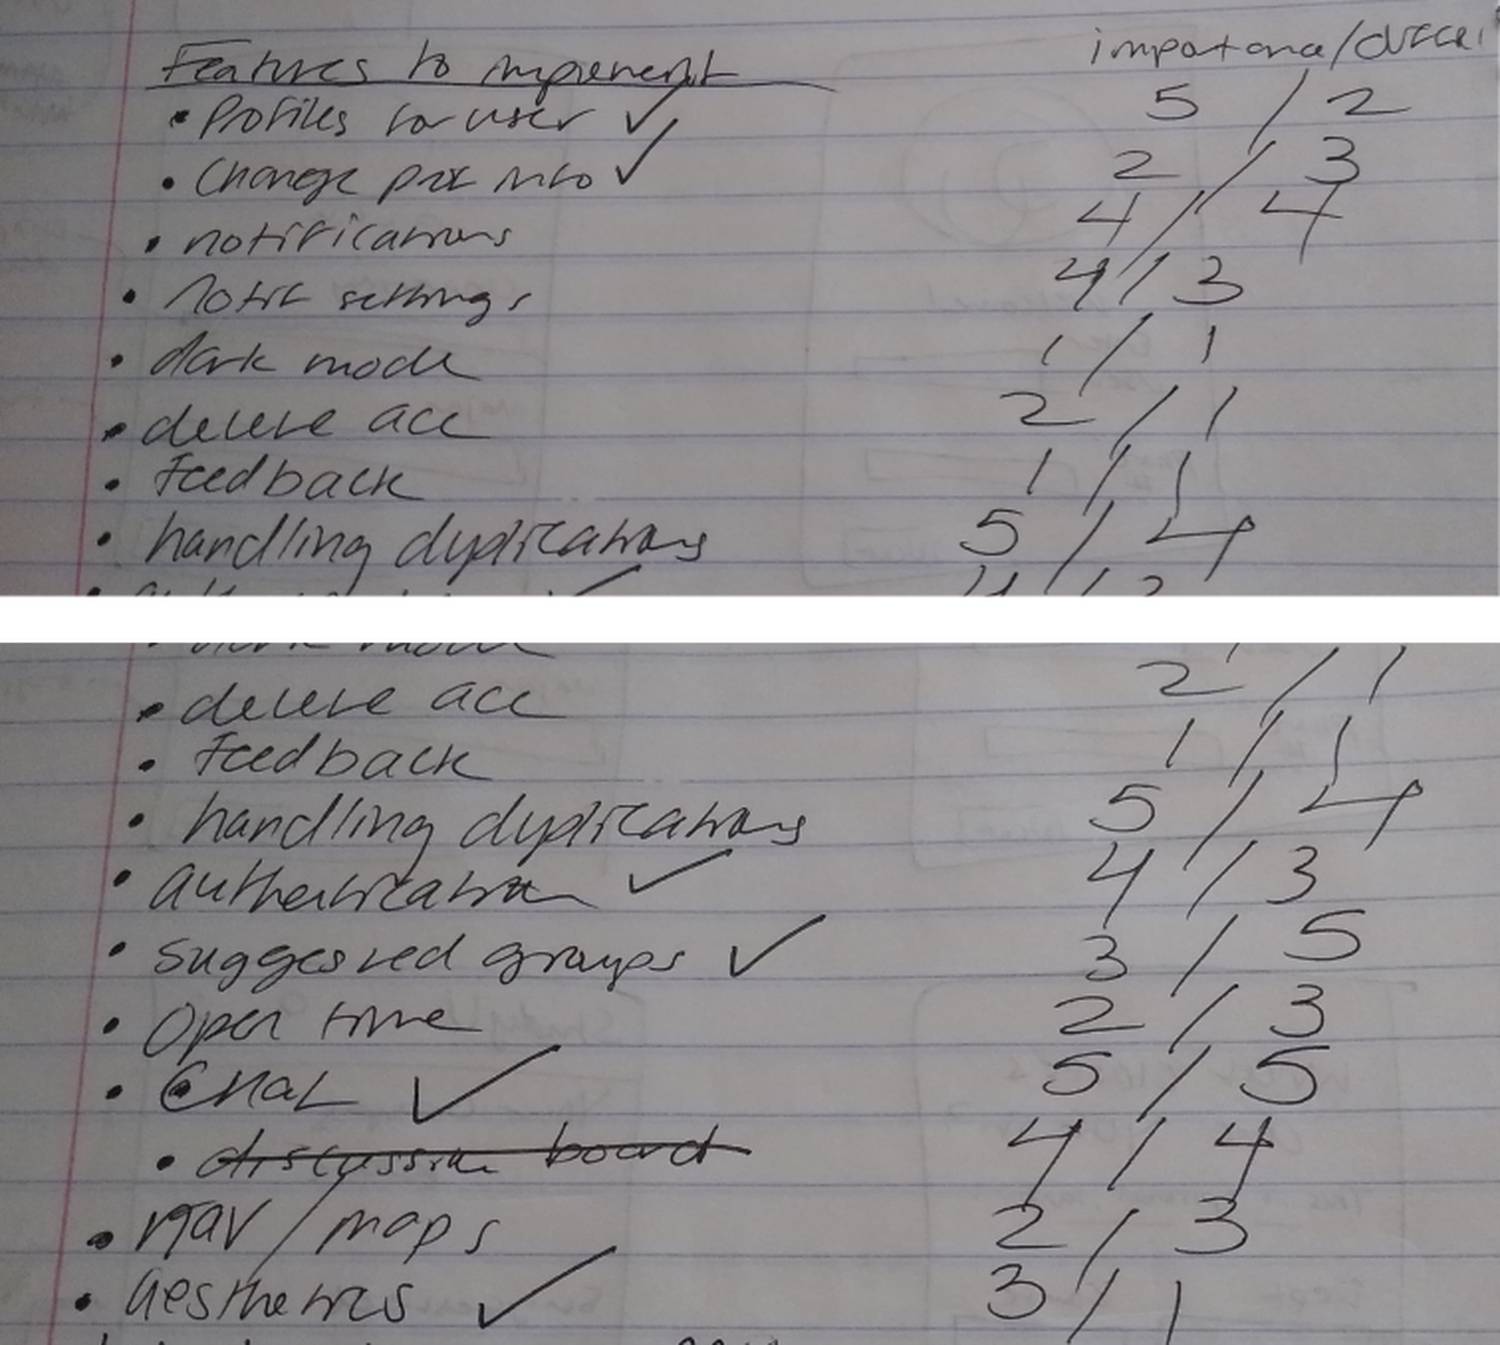 Features to implement importance/difficul
• Profiles for user ✓ 5 / 2
• Change prof info ✓ 2 / 3
• notifications 4 / 4
• Notif settings 4 / 3
• dark mode 1 / 1
• delete acc 2 / 1
• Feedback 1 / 1
• handling duplications 5 / 4
• dark mode
• delete acc 2 / 1
• Feedback 1 / 1
• handling duplications 5 / 4
• authentication ✓ 4 / 3
• suggested groups ✓ 3 / 5
• Open time 2 / 3
• Chat ✓ 5 / 5
• discussion board 4 / 4
• nav / maps 2 / 3
• aesthetics ✓ 3 / 1